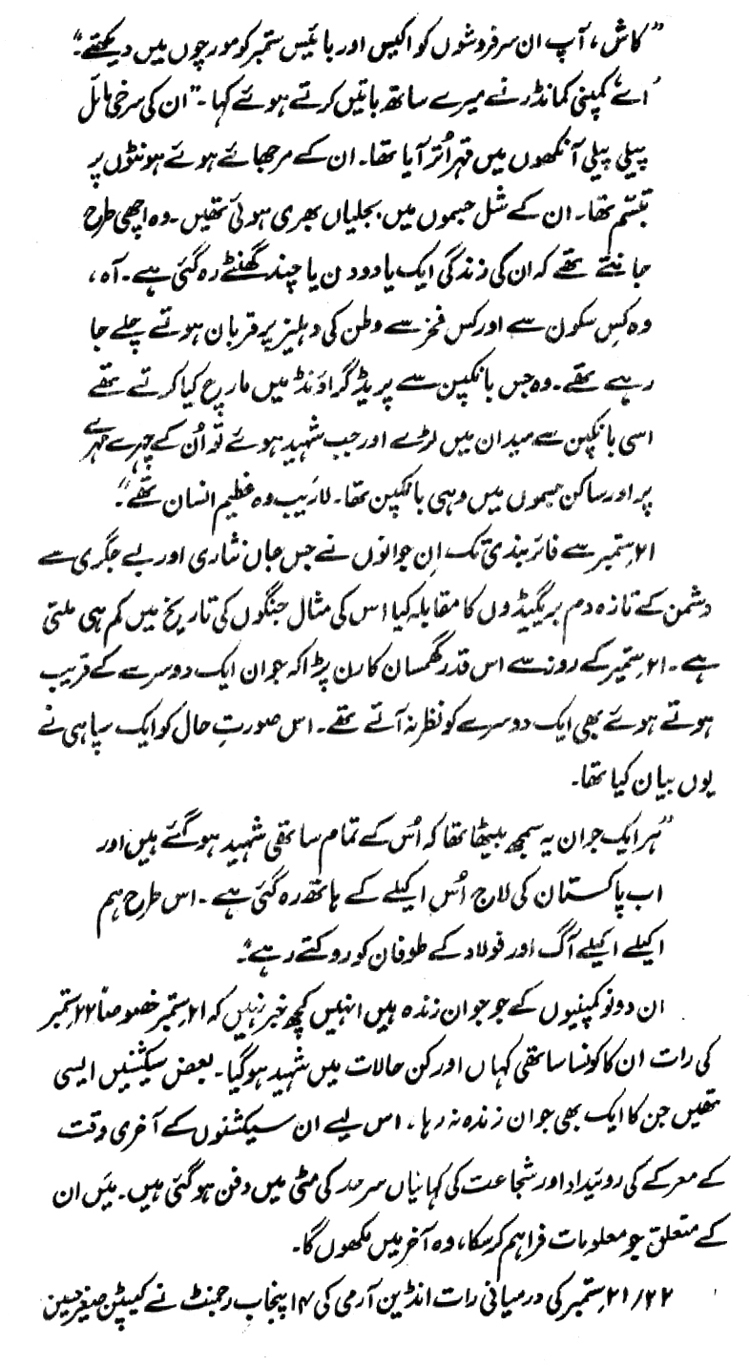 ”کاش، آپ ان سرفروشوں کو اکیس اور بائیس ستمبر کو مورچوں میں دیکھتے۔“
’اے‘ کمپنی کمانڈر نے میرے ساتھ باتیں کرتے ہوئے کہا۔ ”ان کی سرخی مائل
پیلی پیلی آنکھوں میں قہر اُتر آیا تھا۔ ان کے مرجھائے ہوئے ہونٹوں پر
تبسّم تھا۔ ان کے شل جسموں میں بجلیاں بھری ہوئی تھیں۔ وہ اچھی طرح
جانتے تھے کہ ان کی زندگی ایک یا دو دن یا چند گھنٹے رہ گئی ہے۔ آہ،
وہ کس سکون سے اور کس فخر سے وطن کی دہلیز پر قربان ہوتے چلے جا
رہے تھے۔ وہ جس بانکپن سے پریڈ گراؤنڈ میں مارچ کیا کرتے تھے
اسی بانکپن سے میدان میں لڑے اور جب شہید ہوئے تو اُن کے چہرے مہرے
پر اور ساکن جسموں میں وہی بانکپن تھا۔ لاریب وہ عظیم انسان تھے۔“
۲۱ ستمبر سے فائر بندی تک اِن جوانوں نے جس جان نثاری اور بے جگری سے
دشمن کے تازہ دم بریگیڈوں کا مقابلہ کیا اس کی مثال جنگوں کی تاریخ میں کم ہی ملتی
ہے۔ ۲۱ ستمبر کے روز سے اس قدر گھمسان کا رن پڑا کہ جوان ایک دوسرے کے قریب
ہوتے ہوئے بھی ایک دوسرے کو نظر نہ آتے تھے۔ اس صورتِ حال کو ایک سپاہی نے
یوں بیان کیا تھا۔
”ہر ایک جوان یہ سمجھ بیٹھا تھا کہ اُس کے تمام ساتھی شہید ہو گئے ہیں اور
اب پاکستان کی لاج اُس اکیلے کے ہاتھ رہ گئی ہے۔ اس طرح ہم
اکیلے اکیلے آگ اور فولاد کے طوفان کو روکتے رہے۔“
ان دونو کمپنیوں کے جو جوان زندہ ہیں انہیں کچھ خبر نہیں کہ ۲۱ ستمبر خصوصاً ۲۲ ستمبر
کی رات ان کا کونسا ساتھی کہاں اور کن حالات میں شہید ہو گیا۔ بعض سیکشنیں ایسی
تھیں جن کا ایک بھی جوان زندہ نہ رہا، اس لیے ان سیکشنوں کے آخری وقت
کے معرکے کی روئیداد اور شجاعت کی کہانیاں سرحد کی مٹی میں دفن ہو گئی ہیں۔ میں ان
کے متعلق جو معلومات فراہم کر سکا، وہ آخر میں لکھوں گا۔
۲۱/۲۲ ستمبر کی درمیانی رات انڈین آرمی کی ۱۴ پنجاب رجمنٹ نے کیپٹن صغیر حسین